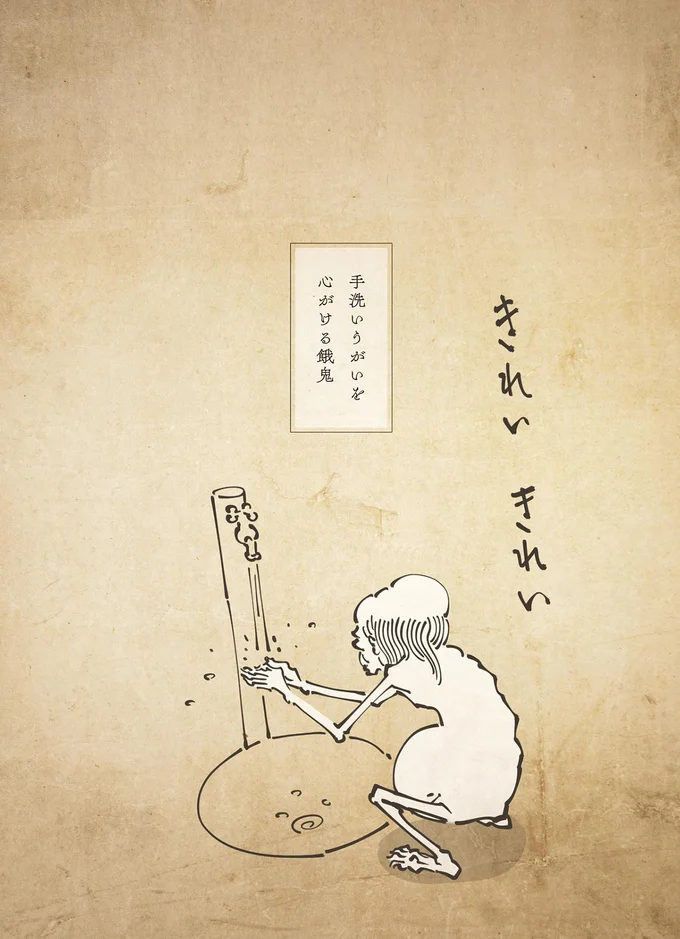 きれい
きれい
手洗いうがいを
心がける餓鬼